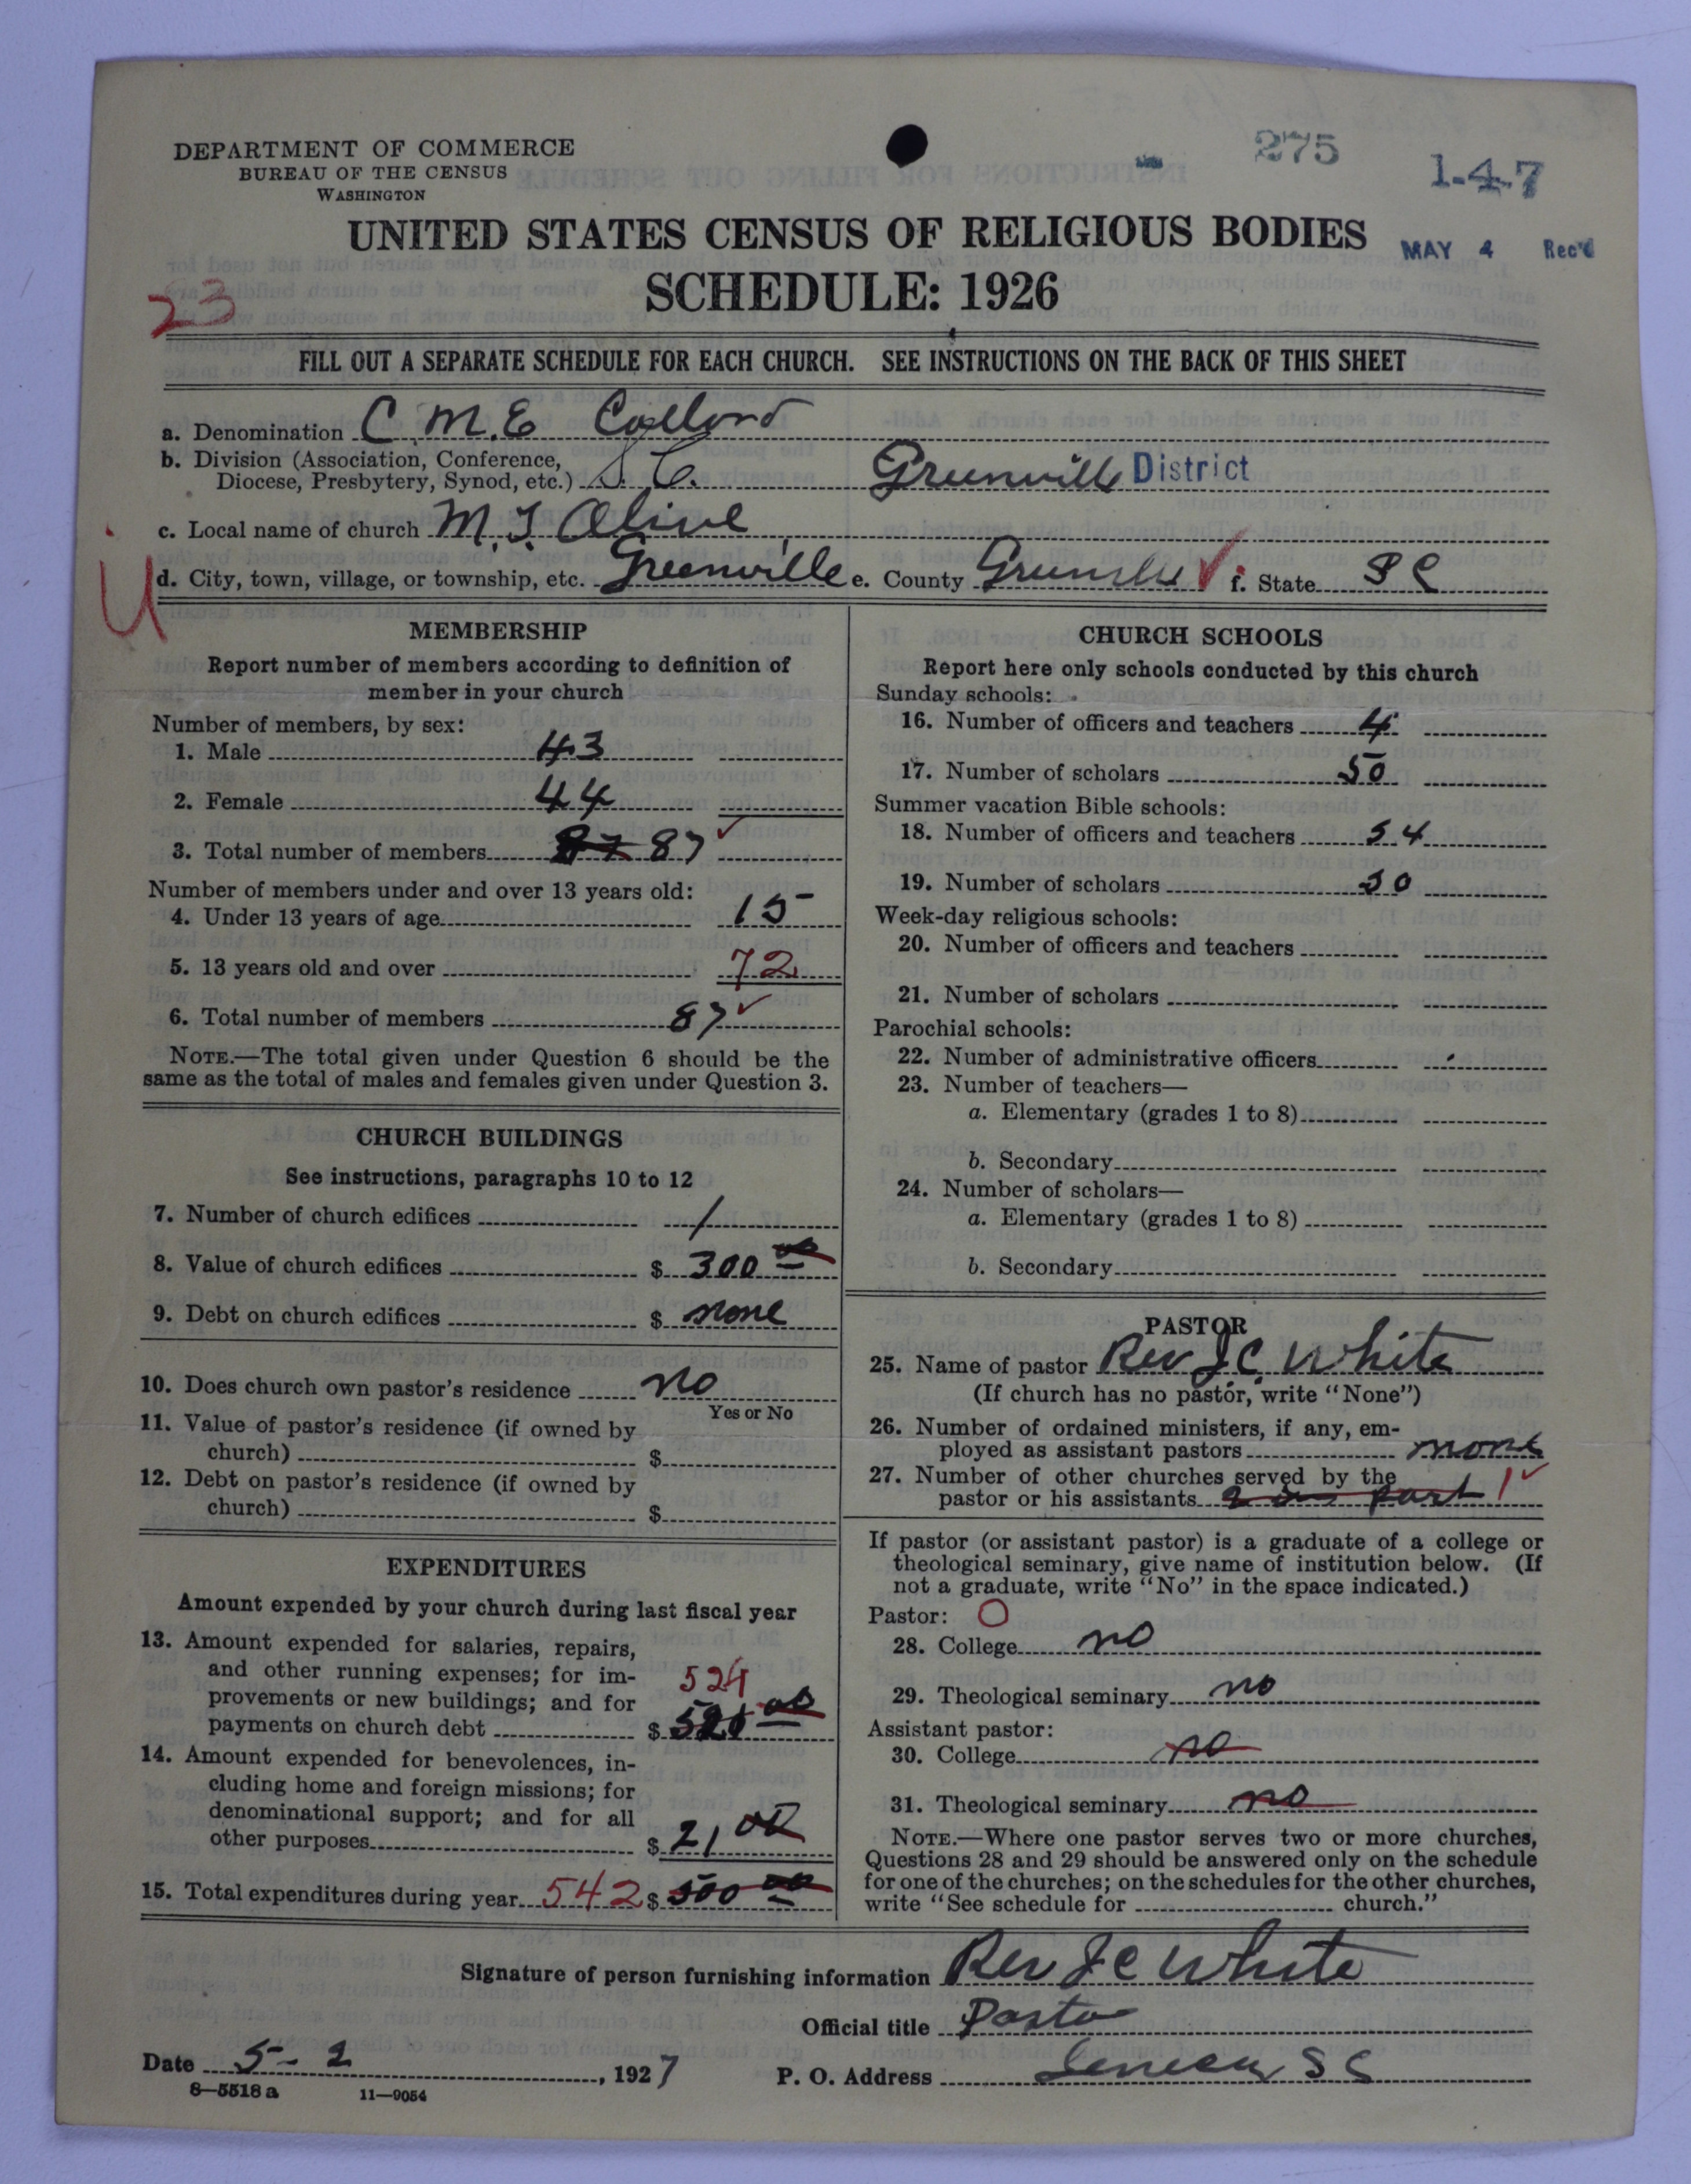 275
1-4-7
DEPARTMENT OF COMMERCE
BUREAU OF THE CENSUS
WASHINGTON
UNITED STATES CENSUS OF RELIGIOUS BODIES
MAY 4 Rec'd
SCHEDULE: 1926
23
FILL OUT A SEPARATE SCHEDULE FOR EACH CHURCH. SEE INSTRUCTIONS ON THE BACK OF THIS SHEET
a. Denomination C.M.E Collord
b. Division (Association, Conference,
Diocese, Presbytery, Synod, etc.) S.C. Greenville District
c. Local name of church M.T. Olive
d. City, town, village, or township, etc. Greenville e. County Greenville f. State S C
MEMBERSHIP
Report number of members according to definition of
member in your church
Number of members, by sex:
1. Male 43
2. Female 44
3. Total number of members 87 87
Number of members under and over 13 years old:
4. Under 13 years of age 15
5. 13 years old and over 72
6. Total number of members 87
NOTE.—The total given under Question 6 should be the
same as the total of males and females given under Question 3.
CHURCH BUILDINGS
See instructions, paragraphs 10 to 12
7. Number of church edifices 1
8. Value of church edifices $ 300 00
9. Debt on church edifices $ none
10. Does church own pastor's residence no
Yes or No
11. Value of pastor's residence (if owned by
church) $
12. Debt on pastor's residence (if owned by
church) $
EXPENDITURES
Amount expended by your church during last fiscal year
13. Amount expended for salaries, repairs,
and other running expenses; for im-
provements or new buildings; and for
payments on church debt $ 521 00
14. Amount expended for benevolences, in-
cluding home and foreign missions; for
denominational support; and for all
other purposes $ 21 00
15. Total expenditures during year 542 $ 500 00
CHURCH SCHOOLS
Report here only schools conducted by this church
Sunday schools:
16. Number of officers and teachers 4
17. Number of scholars 50
Summer vacation Bible schools:
18. Number of officers and teachers 54
19. Number of scholars 30
Week-day religious schools:
20. Number of officers and teachers
21. Number of scholars
Parochial schools:
22. Number of administrative officers
23. Number of teachers—
a. Elementary (grades 1 to 8)
b. Secondary
24. Number of scholars—
a. Elementary (grades 1 to 8)
b. Secondary
PASTOR
25. Name of pastor Rev J.C. White
(If church has no pastor, write "None")
26. Number of ordained ministers, if any, em-
ployed as assistant pastors none
27. Number of other churches served by the
pastor or his assistants 2 part 1
If pastor (or assistant pastor) is a graduate of a college or
theological seminary, give name of institution below. (If
not a graduate, write "No" in the space indicated.)
Pastor: O
28. College no
29. Theological seminary no
Assistant pastor:
30. College no
31. Theological seminary no
NOTE.—Where one pastor serves two or more churches,
Questions 28 and 29 should be answered only on the schedule
for one of the churches; on the schedules for the other churches,
write "See schedule for church."
Signature of person furnishing information Rev J C White
Official title Pastor
Date 5-2, 1927 P. O. Address Seneca S C
8—5518 a 11—9054